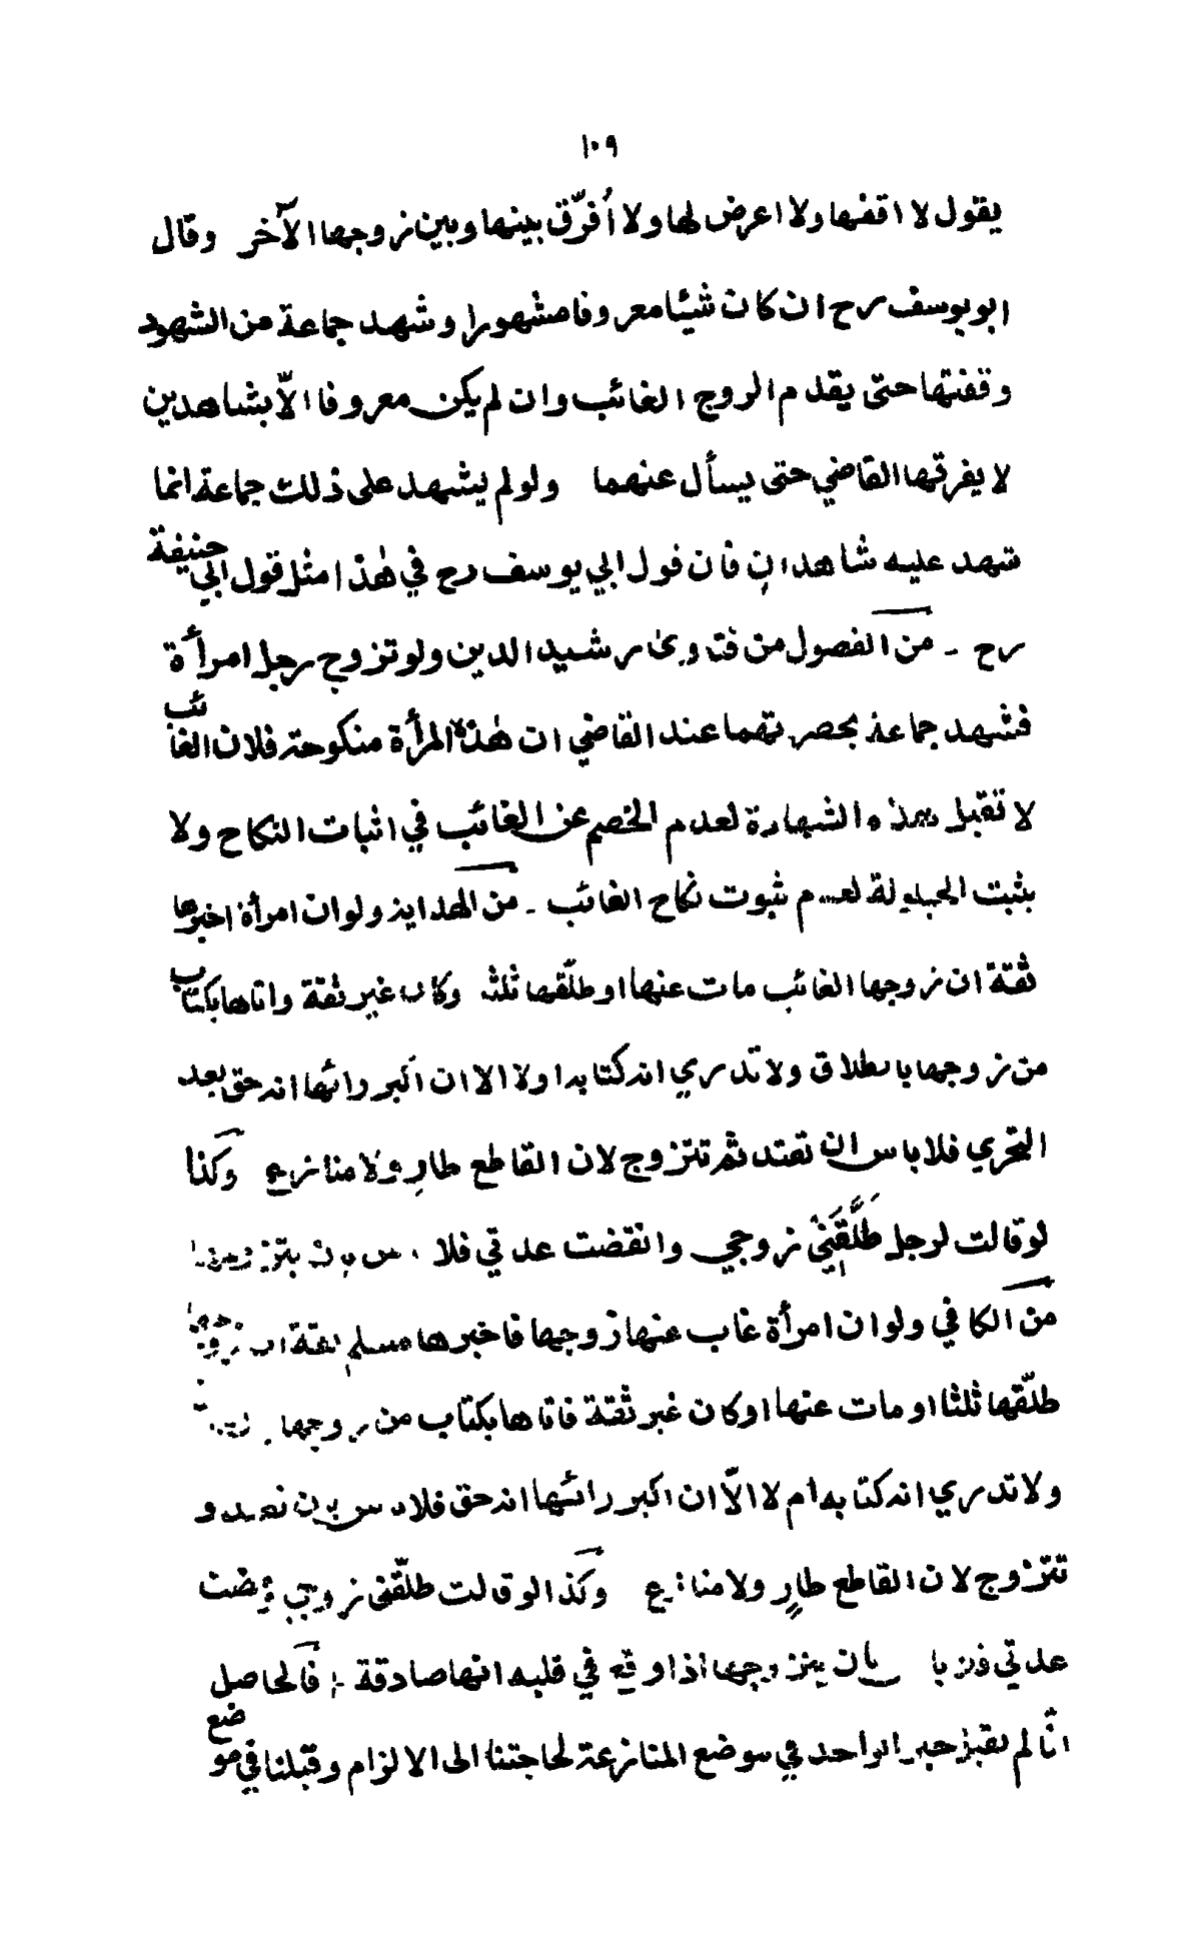 ١٠٩
يقول لا اقفها ولا اعرض لها ولا أُفرّق بينها وبين زوجها الآخر وقال
ابو يوسف رح ان كان شيئا معروفا مشهورا وشهد جماعة من الشهود
وقفتها حتّى يقدم الزوج الغائب وان لم يكن معروفا الاّ بشاهدين
لا يفرقها القاضي حتى يسأل عنهما ولو لم يشهد على ذلك جماعة انما
شهد عليه شاهدان فان قول ابي يوسف رح في هٰذا مثل قول ابي حنيفة
رح ـ من الفصول من فتاوىٰ رشيد الدين ولو تزوج رجل امرأة
فشهد جماعة بحضرتهما عند القاضي ان هٰذه المرأة منكوحة فلان الغائب
لا تقبل هذه الشهادة لعدم الخصم عن الغائب في اثبات النكاح ولا
يثبت الحيلولة لعدم ثبوت نكاح الغائب ـ من الهداية ولو ان امرأة اخبرها
ثقة ان زوجها الغائب مات عنها او طلّقها ثلثا وكان غير ثقة واتاها بكتاب
من زوجها بالطلاق ولا تدري انه كتابه اولا الا ان اكبر رائها انه حق بعد
التحري فلا باس ان تعتد ثم تتزوج لان القاطع طارٍ ولا منازع وكذا
لو قالت لرجل طَلَّقَنِي زوجي وانقضت عدتي فلا باس بان يتزوجها
من الكافي ولو ان امرأة غاب عنها زوجها فاخبرها مسلم ثقة ان زوجها
طلّقها ثلثا او مات عنها او كان غير ثقة فاتاها بكتاب من زوجها
ولا تدري انه كتابه ام لا الاّ ان اكبر رائها انه حق فلا باس بان تعتد و
تتزوج لان القاطع طارٍ ولا منازع وكذا لو قالت طلّقني زوجي وانقضت
عدتي فلا باس بان يتزوجها اذا وقع في قلبه انها صادقة فالحاصل
انّا لم نقبل خبر الواحد في موضع المنازعة لحاجتنا الى الالزام وقبلنا في موضع